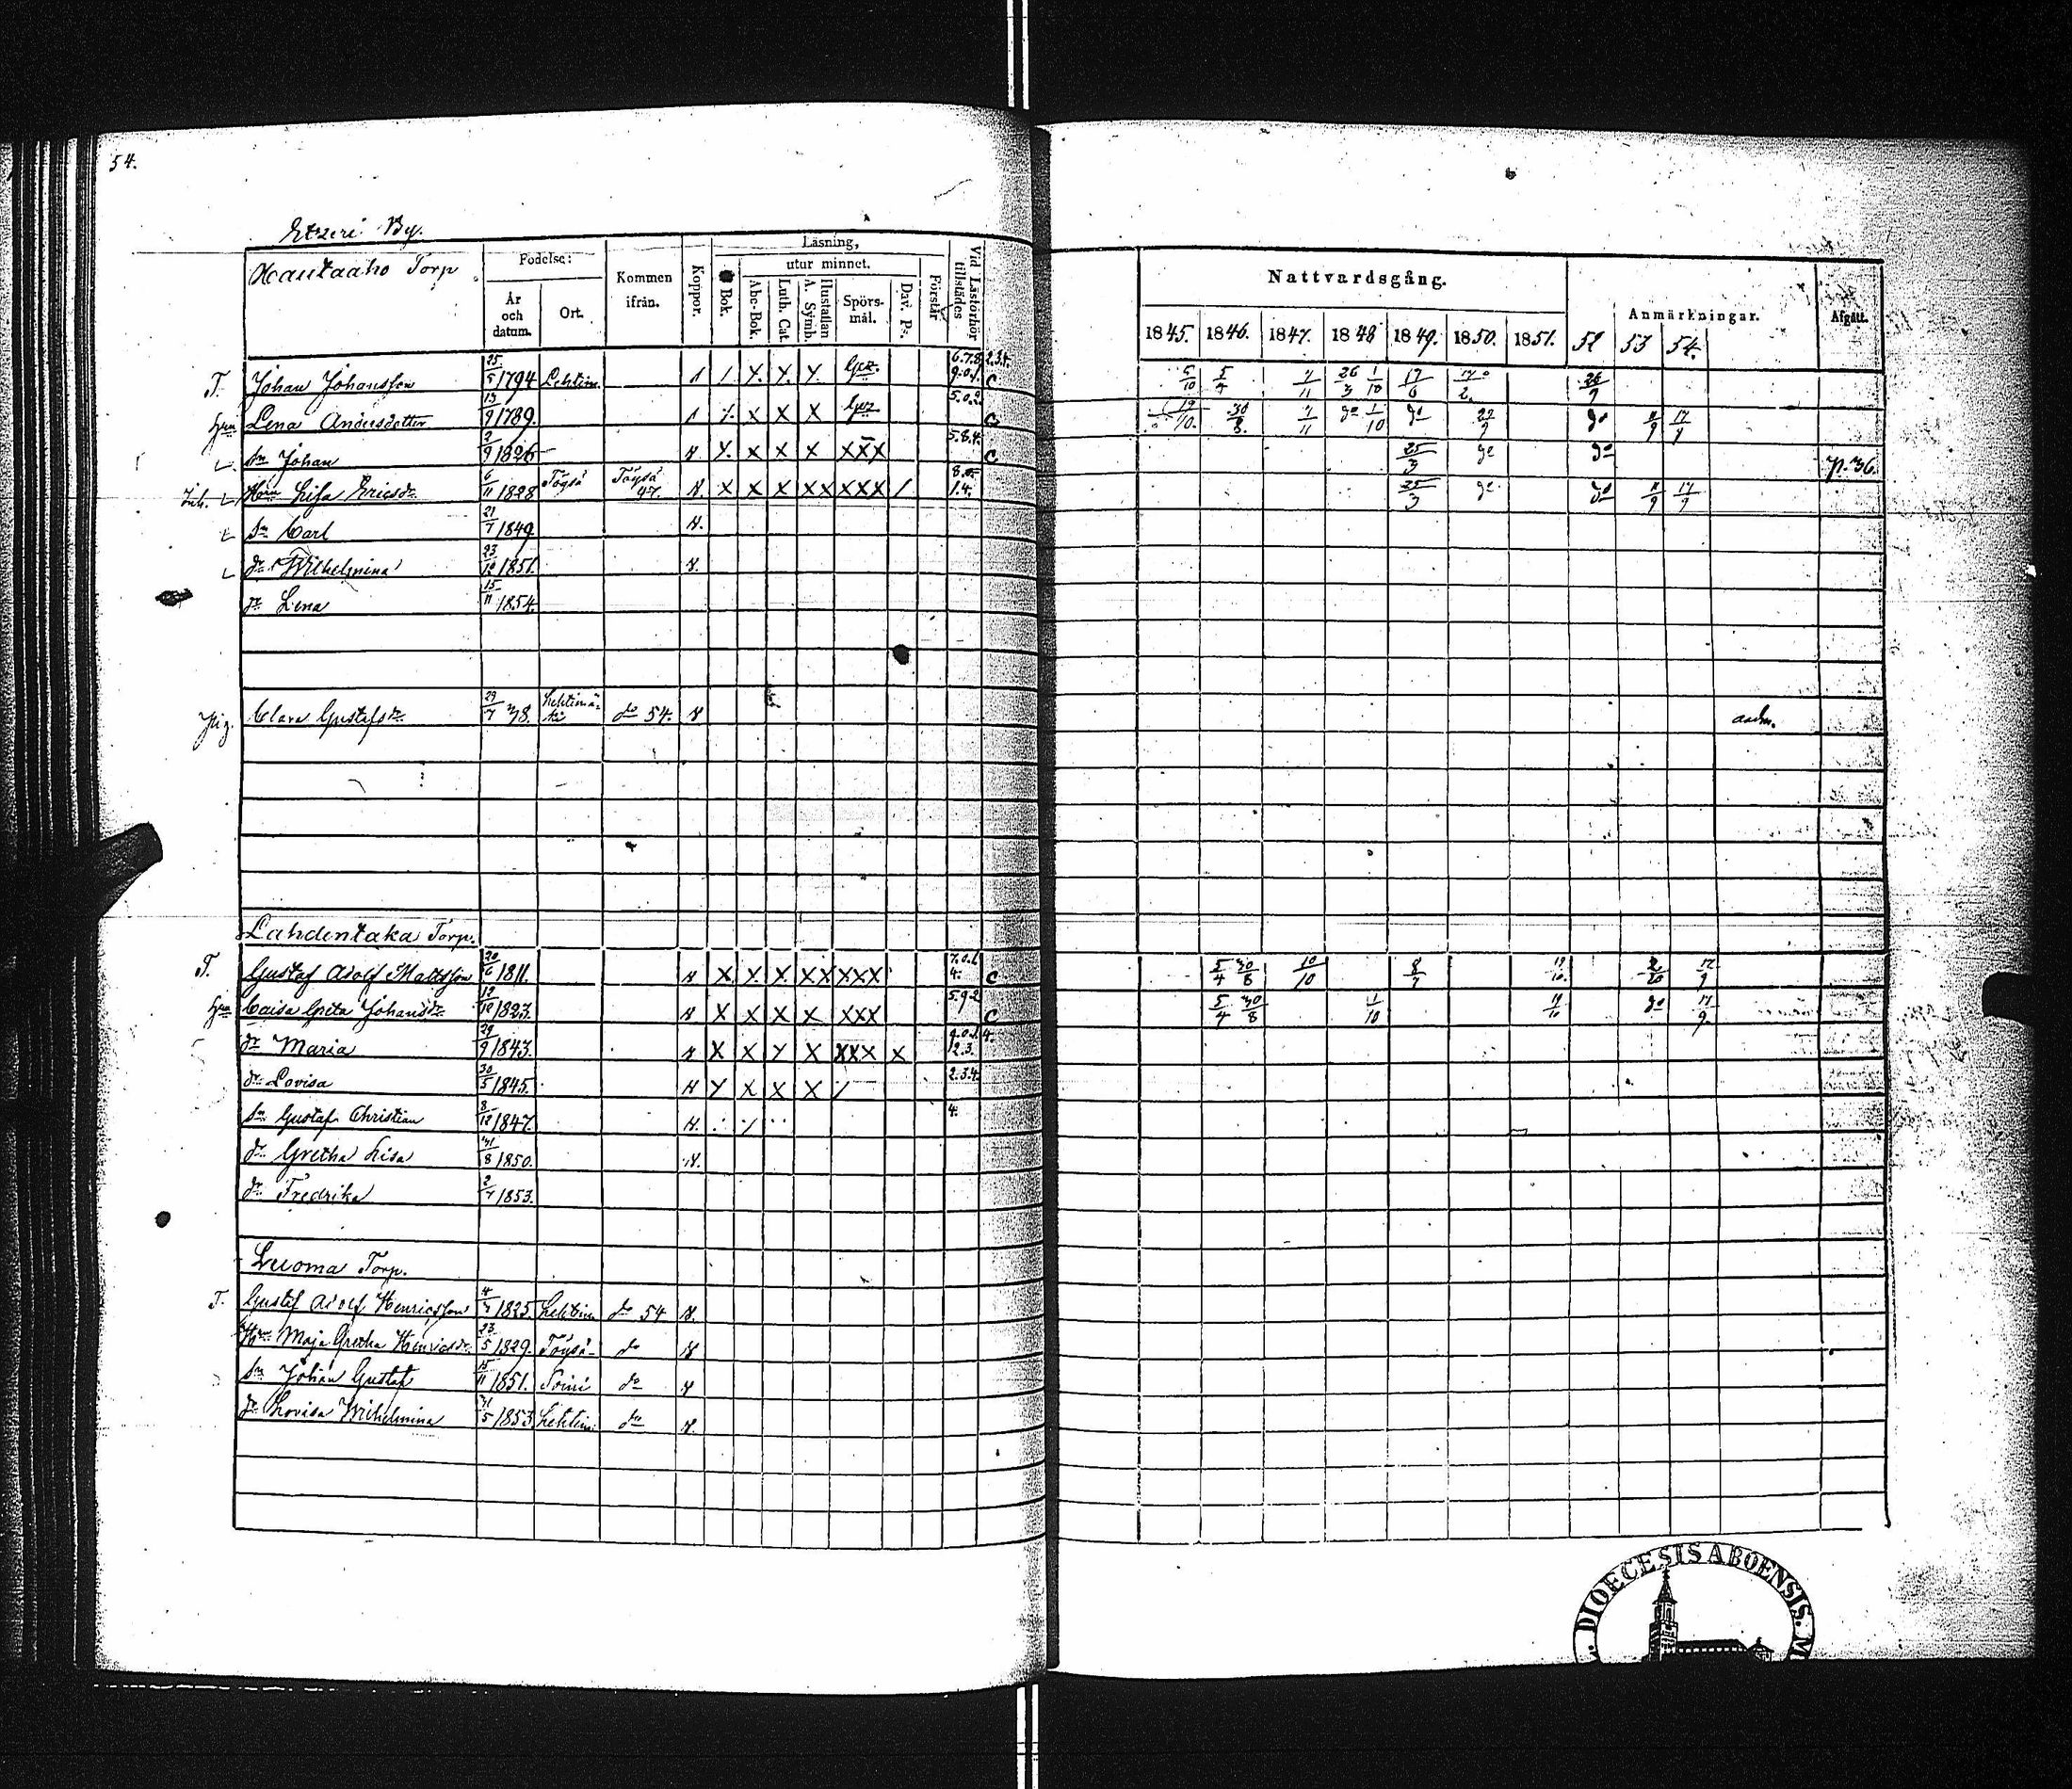 54.
Etzeri By.
Hautaaho Torp
Födelse:
År och datum.
Ort.
Kommen ifrån.
Koppor.
Läsning,
utur minnet.
Bok.
Abc-Bok.
Luth. Cat.
Hustaflan A. Symb.
Spörs-mål.
Dav. Ps.
Förstår
Vid Läsförhör tillstädes
Nattvardsgång.
1845. 1846. 1847. 1848 1849. 1850. 1851. 52 53 54.
Anmärkningar.
Afgått.
T. Johan Johansson 25/5 1794 Lehtim. 6.7.8. 2.3.4. 9.0.1. C 5/10 5/4 7/11 26/3 1/10 17/6 26/9
Hru Lena Andersdotter 13/9 1789. X X X 5.0.2. C 19/10. 30/8. 7/11 1/10 11/9 17/9
Sn Johan 2/9 1826 X X X XXX 5.8.4. C 25/3 p. 36.
Inh. Hru Lisa Ericsdr 6/11 1828 Töysä Töysä 47. X X X XX XXX / 8.0. 1.4. 25/3 11/9 17/9
Sn Carl 21/7 1849.
dr Wilhelmina 23/12 1851.
dr Lena 15/11 1854.
Pig. Clara Gustafsdr 29/7 38. Lehtimäki do 54. adm.
Lahdentaka Torp.
T. Gustaf Adolf Mattsson 20/6 1811. X X X XX XXX 7.0.1. 4. C 5/4 30/8 10/10 8/7 12/9
Hru Caisa Greta Johansdr 12/10 1823. X X X X XXX 5.9.2 C 5/4 30/8 1/10 17/9.
dr Maria 29/9 1843. X X X X XXX X 9.0.1. 4. 2.3.
dr Lovisa 30/5 1845. X X X X / 2.3.4.
Sn Gustaf Christian 8/12 1847. 4.
dr Gretha Lisa 31/8 1850.
dr Fredrika 2/7 1853.
Luoma Torp.
T. Gustaf Adolf Henricsson 4/3 1825. Lehtim do 54
Hru Maja Gretha Henricsdr 23/5 1829. Töysä do
Sn Johan Gustaf 15/11 1851. Soini do
dr Lovisa Wilhelmina 31/5 1853 Lehtim. do
DIOECESIS ABOENSIS. M